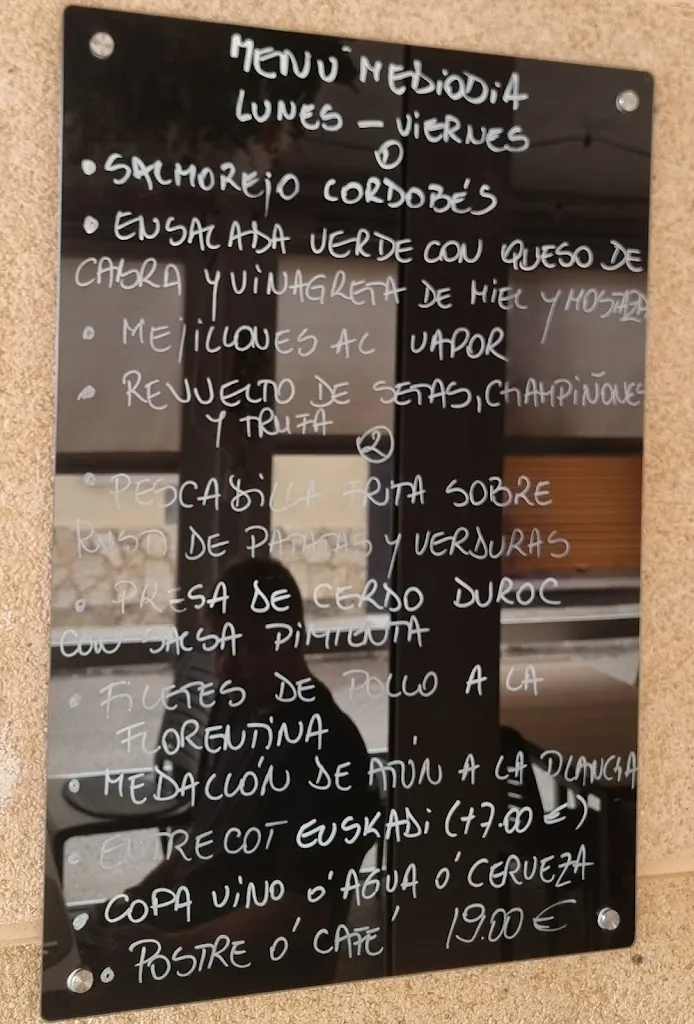 MENÚ MEDIODIA
LUNES - VIERNES
①
• SALMOREJO CORDOBÉS
• ENSALADA VERDE CON QUESO DE
CABRA Y VINAGRETA DE MIEL Y MOSTAZA
• MEJILLONES AL VAPOR
• REVUELTO DE SETAS, CHAMPIÑONES
Y TRUFA
②
• PESCADILLA FRITA SOBRE
DE PATATAS Y VERDURAS
• PRESA DE CERDO DUROC
CON SALSA PIMIENTA
• FILETES DE POLLO A LA
FLORENTINA
• MEDALLÓN DE ATÚN A LA PLANCHA
• ENTRECOT EUSKADI (+7.00 €)
• COPA VINO O' AGUA O' CERVEZA
• POSTRE O' CAFE' 19.00 €